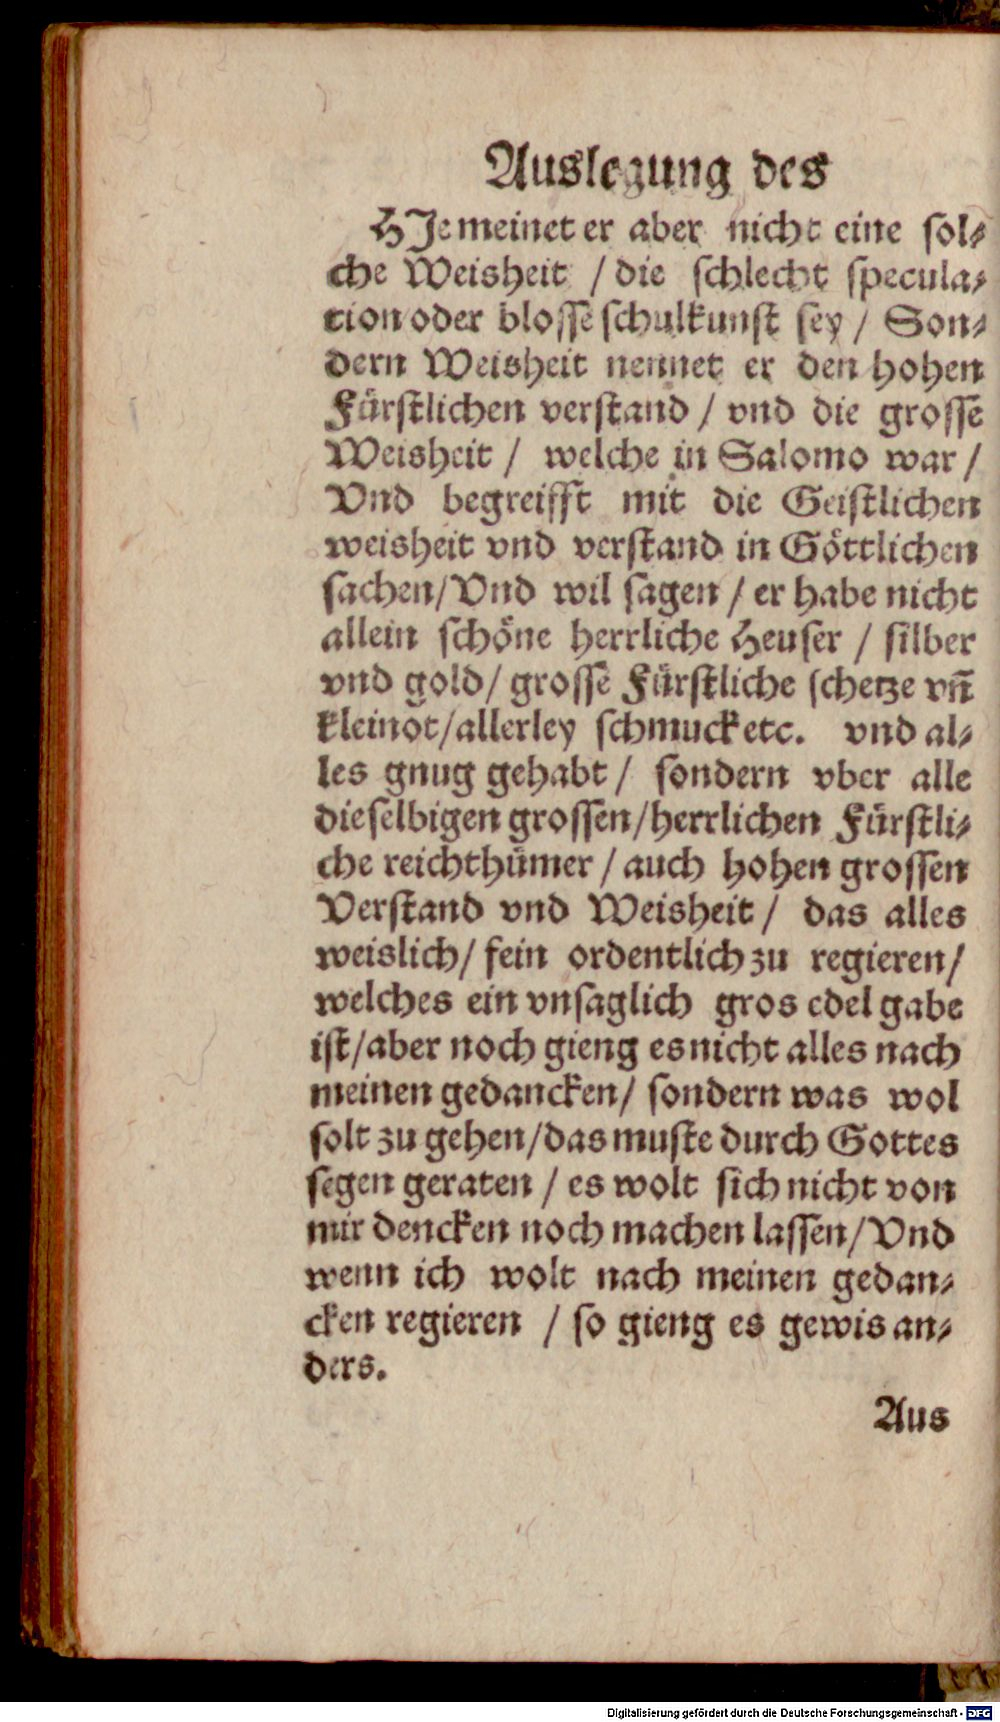 Auslegung des
HJe meinet er aber nicht eine sol⸗
che Weisheit / die schlecht specula⸗
tion oder blosse schulkunst sey / Son⸗
dern Weisheit nennet er den hohen
Fürstlichen verstand / vnd die grosse
Weisheit / welche in Salomo war /
Vnd begreifft mit die Geistlichen
weisheit vnd verstand in Göttlichen
sachen/Vnd wil sagen / er habe nicht
allein schöne herrliche Heuser / silber
vnd gold/ grosse Fürstliche schetze vn̄
kleinot/allerley schmuck etc. vnd al⸗
les gnug gehabt / sondern vber alle
dieselbigen grossen/herrlichen Fürstli⸗
che reichthümer / auch hohen grossen
Verstand vnd Weisheit / das alles
weislich/ fein ordentlich zu regieren/
welches ein vnsaglich gros edel gabe
ist/aber noch gieng es nicht alles nach
meinen gedancken/ sondern was wol
solt zu gehen/das muste durch Gottes
segen geraten / es wolt sich nicht von
mir dencken noch machen lassen/Vnd
wenn ich wolt nach meinen gedan⸗
cken regieren / so gieng es gewis an⸗
ders.
Aus
Digitalisierung gefördert durch die Deutsche Forschungsgemeinschaft - DFG